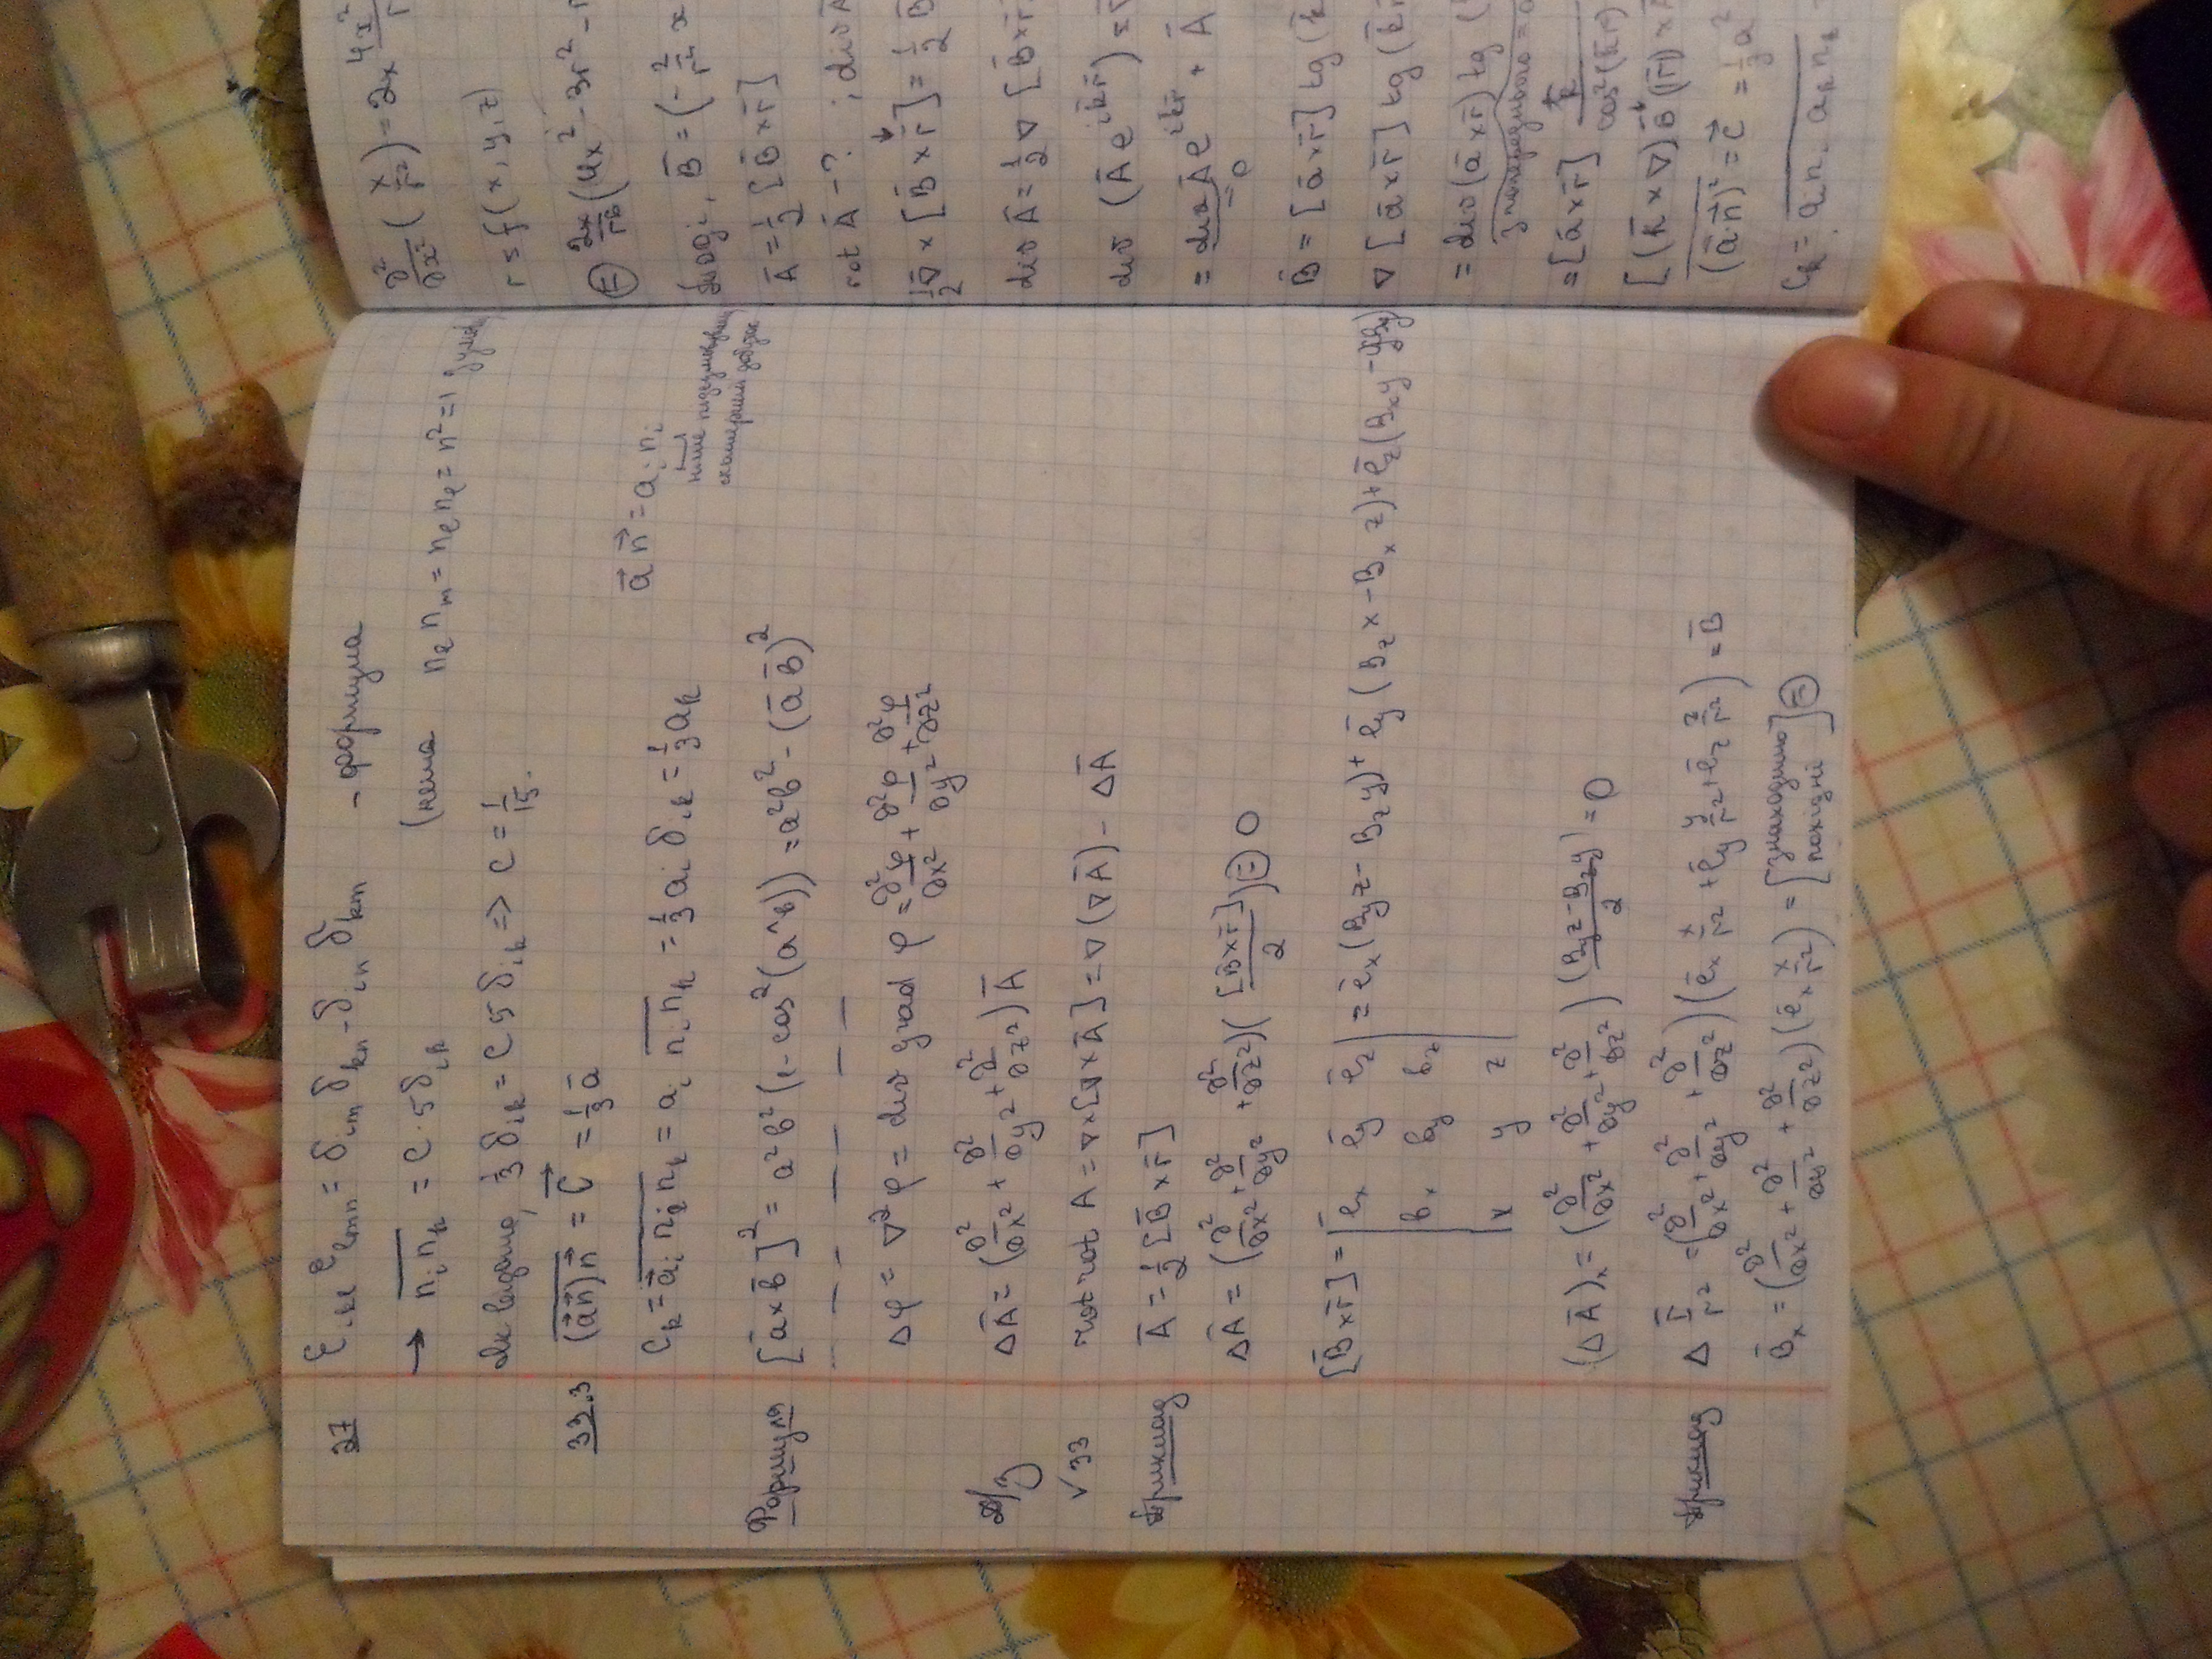 27 ε_ikl ε_lmn = δ_im δ_kn - δ_in δ_km - формула
→ \overline{n_i n_k} = C · 5δ_ik (нема n_k n_m = n_e n_e = n² = 1
1/3 δ_ik = C 5 δ_ik => C = 1/15.
33.3 \overline{(\vec{a}\vec{n})\vec{n}} = \vec{C} = 1/3 \bar{a}
\vec{a}\vec{n} = a_i n_i
C_k = \overline{a_i n_i n_k} = a_i \overline{n_i n_k} = 1/3 a_i δ_ik = 1/3 a_k
Формула [\bar{a}×\bar{b}]² = a²b²(1-cos²(a^b)) = a²b² - (\bar{a}\bar{b})²
Δφ = ∇²φ = div grad φ = ∂²φ/∂x² + ∂²φ/∂y² + ∂²φ/∂z²
Д/З Δ\bar{A} = (∂²/∂x² + ∂²/∂y² + ∂²/∂z²)\bar{A}
√33 rot rot A = ∇×[∇×\bar{A}] = ∇(∇\bar{A}) - Δ\bar{A}
Приклад \bar{A} = 1/2 [\bar{B}×\bar{r}]
Δ\bar{A} = (∂²/∂x² + ∂²/∂y² + ∂²/∂z²)([\bar{B}×\bar{r}]/2) ⊜ 0
[\bar{B}×\bar{r}] = | \bar{e}_x \bar{e}_y \bar{e}_z | = \bar{e}_x(B_y z - B_z y) + \bar{e}_y(B_z x - B_x z) + \bar{e}_z(B_x y - B_y
b_x b_y b_z
x y z
(Δ\bar{A})_x = (∂²/∂x² + ∂²/∂y² + ∂²/∂z²)((B_y z - B_z y)/2) = 0
Приклад Δ \bar{r}/r² = (∂²/∂x² + ∂²/∂y² + ∂²/∂z²)(\bar{e}_x x/r² + \bar{e}_y y/r² + \bar{e}_z z/r²) = \bar{B}
\bar{B}_x = (∂²/∂x² + ∂²/∂y² + ∂²/∂z²)(\bar{e}_x x/r²) = [знаходимо похідні] ⊜
∂²/∂x² (x/r²) = 2x 4x²
r = f(x, y, z)
⊜ 2x/r⁶ (4x² - 3r² -
\bar{B} = (-2/r² x
\bar{A} = 1/2 [\bar{B}×\bar{r}]
rot \bar{A} - ? ; div \bar{A}
1/2 \bar{∇} × [\bar{B}×\bar{r}] = 1/2 \bar{B}
div \bar{A} = 1/2 ∇ [\bar{B}×\bar{r}
div (\bar{A} e^{i\bar{k}\bar{r}}) =
= div \bar{A} e^{i\bar{k}\bar{r}} + \bar{A}
= 0
\bar{B} = [\bar{a}×\bar{r}] tg(\bar{k}
∇[\bar{a}×\bar{r}] tg(\bar{k}\bar{r}
= div(\bar{a}×\bar{r}) tg(
з попереднього = 0
= [\bar{a}×\bar{r}] \bar{k}/cos²(\bar{k}\bar{r})
[(\bar{k}×∇)\bar{B}(\bar{r})×
\overline{(\vec{a}·\vec{n})²} = \vec{C} = 1/3 a²
C_k = \overline{a_i n_i a_k n_k}